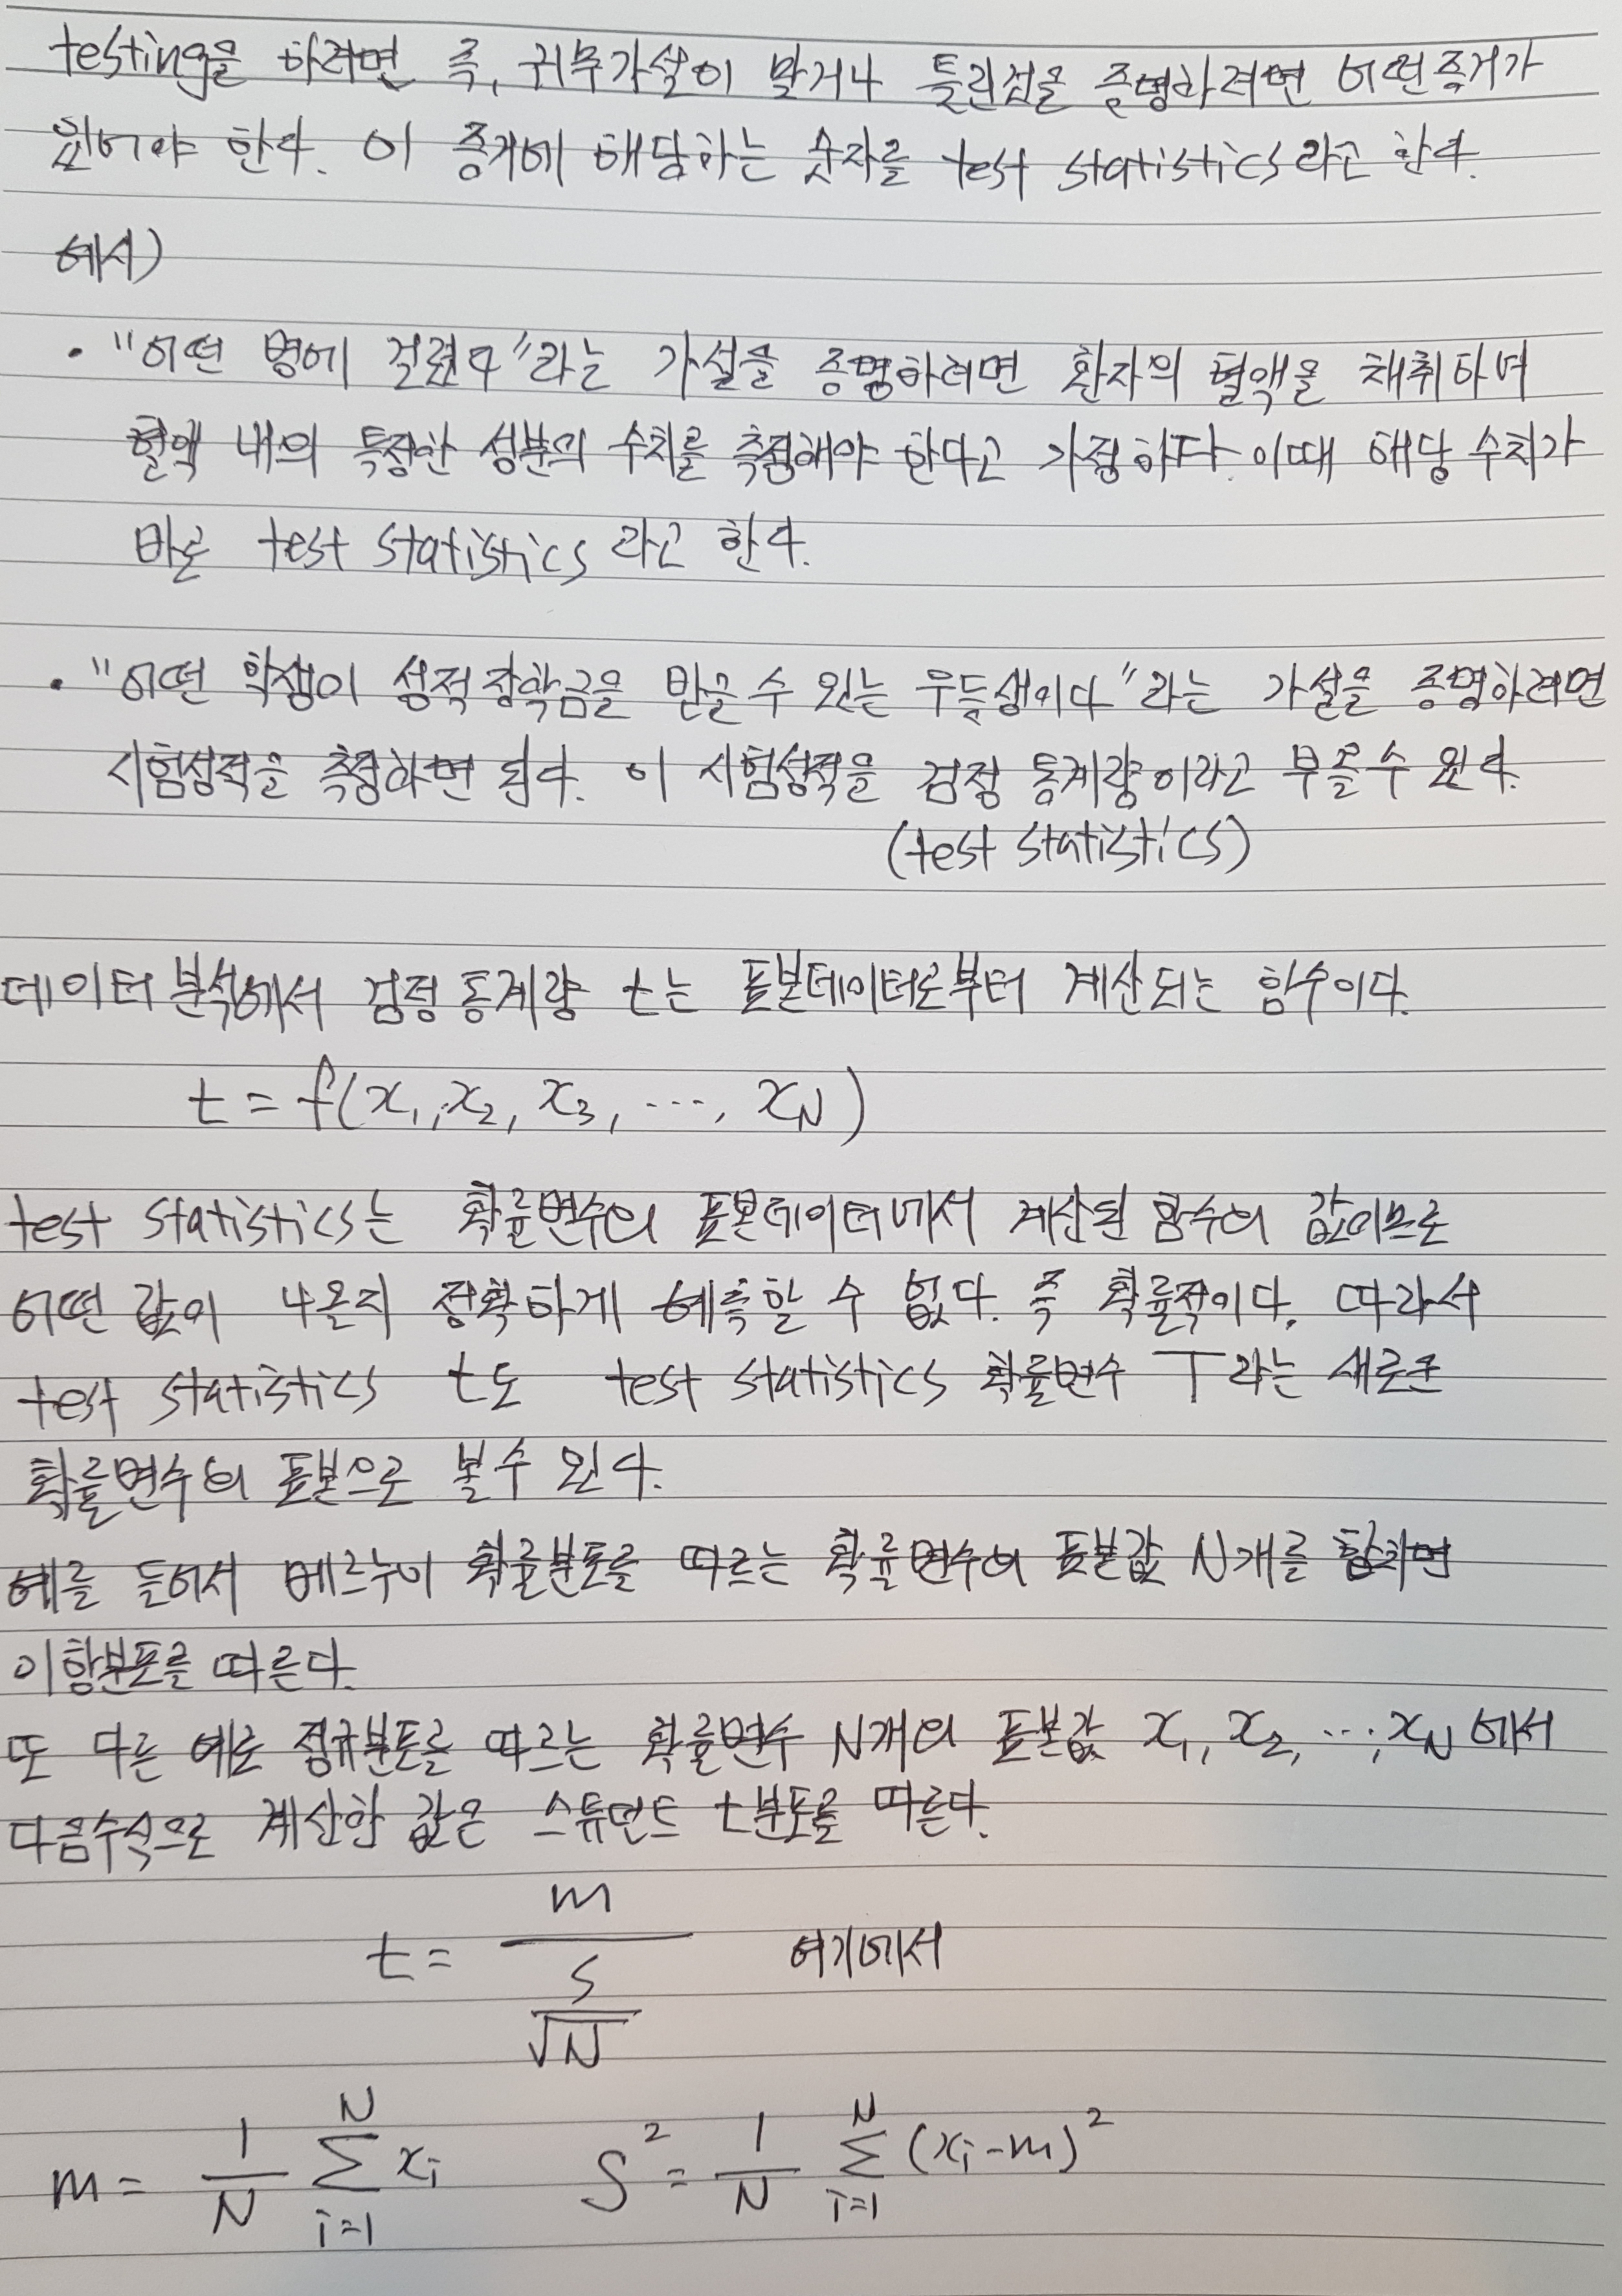 testing을 하려면 즉, 귀무가설이 맞거나 틀린것을 증명하려면 어떤증거가
있어야 한다. 이 증거에 해당하는 숫자를 test statistics라고 한다.
예시)
· "어떤 병에 걸렸다"라는 가설을 증명하려면 환자의 혈액을 채취하여
혈액 내의 특정한 성분의 수치를 측정해야 한다고 가정하다. 이때 해당 수치가
바로 test statistics 라고 한다.
· "어떤 학생이 성적장학금을 받을 수 있는 우등생이다"라는 가설을 증명하려면
시험성적을 측정하면 된다. 이 시험성적을 검정 통계량이라고 부를 수 있다.
(test statistics)
데이터 분석에서 검정 통계량 t는 표본데이터로부터 계산되는 함수이다.
t = f(x₁, x₂, x₃, ..., x_N)
test statistics는 확률변수의 표본데이터에서 계산된 함수의 값이므로
어떤 값이 나올지 정확하게 예측할 수 없다. 즉 확률적이다. 따라서
test statistics t도 test statistics 확률변수 T라는 새로운
확률변수의 표본으로 볼 수 있다.
예를 들어서 베르누이 확률분포를 따르는 확률변수의 표본값 N개를 합치면
이항분포를 따른다.
또 다른 예로 정규분포를 따르는 확률변수 N개의 표본값 x₁, x₂, ..., x_N 에서
다음수식으로 계산한 값은 스튜던트 t분포를 따른다.
t = m / (s / √N) 여기에서
m = 1/N ∑_{i=1}^{N} x_i S² = 1/N ∑_{i=1}^{N} (x_i - m)²